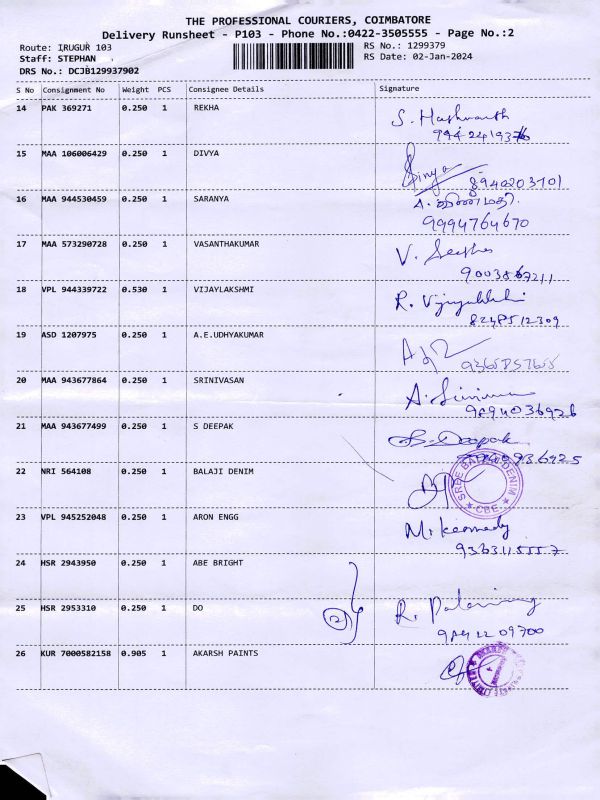 THE PROFESSIONAL COURIERS, COIMBATORE
Delivery Runsheet - P103 - Phone No.:0422-3505555 - Page No.:2
Route: IRUGUR 103
RS No.: 1299379
Staff: STEPHAN
RS Date: 02-Jan-2024
DRS No.: DCJB129937902
S No Consignment No Weight PCS Consignee Details Signature
14 PAK 369271 0.250 1 REKHA S. Hashwanth
15 MAA 106006429 0.250 1 DIVYA
8940203101
16 MAA 944530459 0.250 1 SARANYA
9994764670
17 MAA 573290728 0.250 1 VASANTHAKUMAR V.
18 VPL 944339722 0.530 1 VIJAYLAKSHMI R.
8248512309
19 ASD 1207975 0.250 1 A.E.UDHYAKUMAR
20 MAA 943677864 0.250 1 SRINIVASAN A.
9894036926
21 MAA 943677499 0.250 1 S DEEPAK S. Deepak
22 NRI 564108 0.250 1 BALAJI DENIM
SREE BALAJI DENIM
CBE
23 VPL 945252048 0.250 1 ARON ENGG M. Kennedy
9363115557
24 HSR 2943950 0.250 1 ABE BRIGHT
25 HSR 2953310 0.250 1 DO R.
26 KUR 7000582158 0.905 1 AKARSH PAINTS